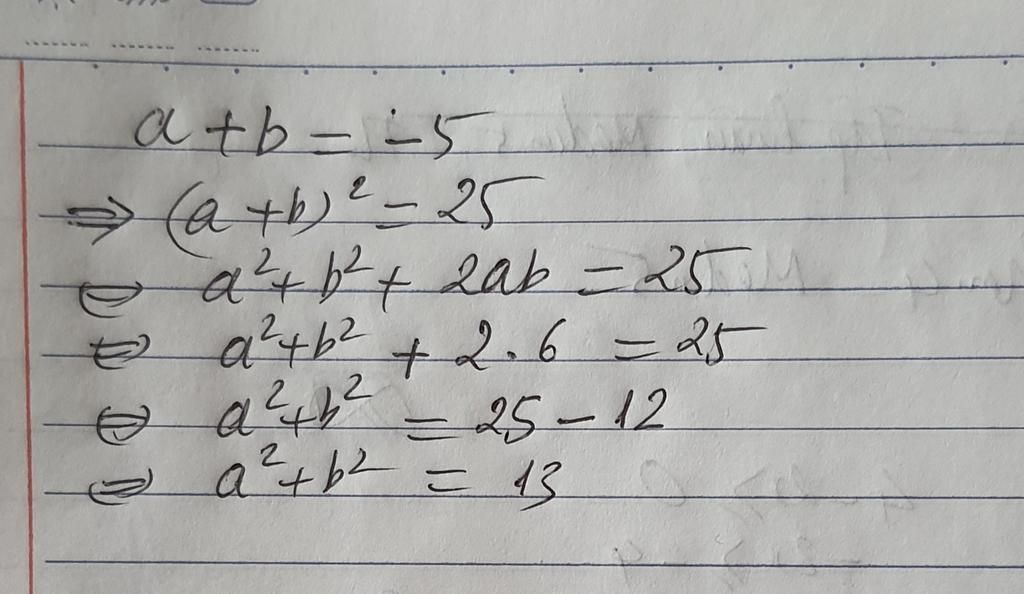 a + b = -5
⇒ (a + b)² = 25
⇔ a² + b² + 2ab = 25
⇔ a² + b² + 2 . 6 = 25
⇔ a² + b² = 25 - 12
⇔ a² + b² = 13